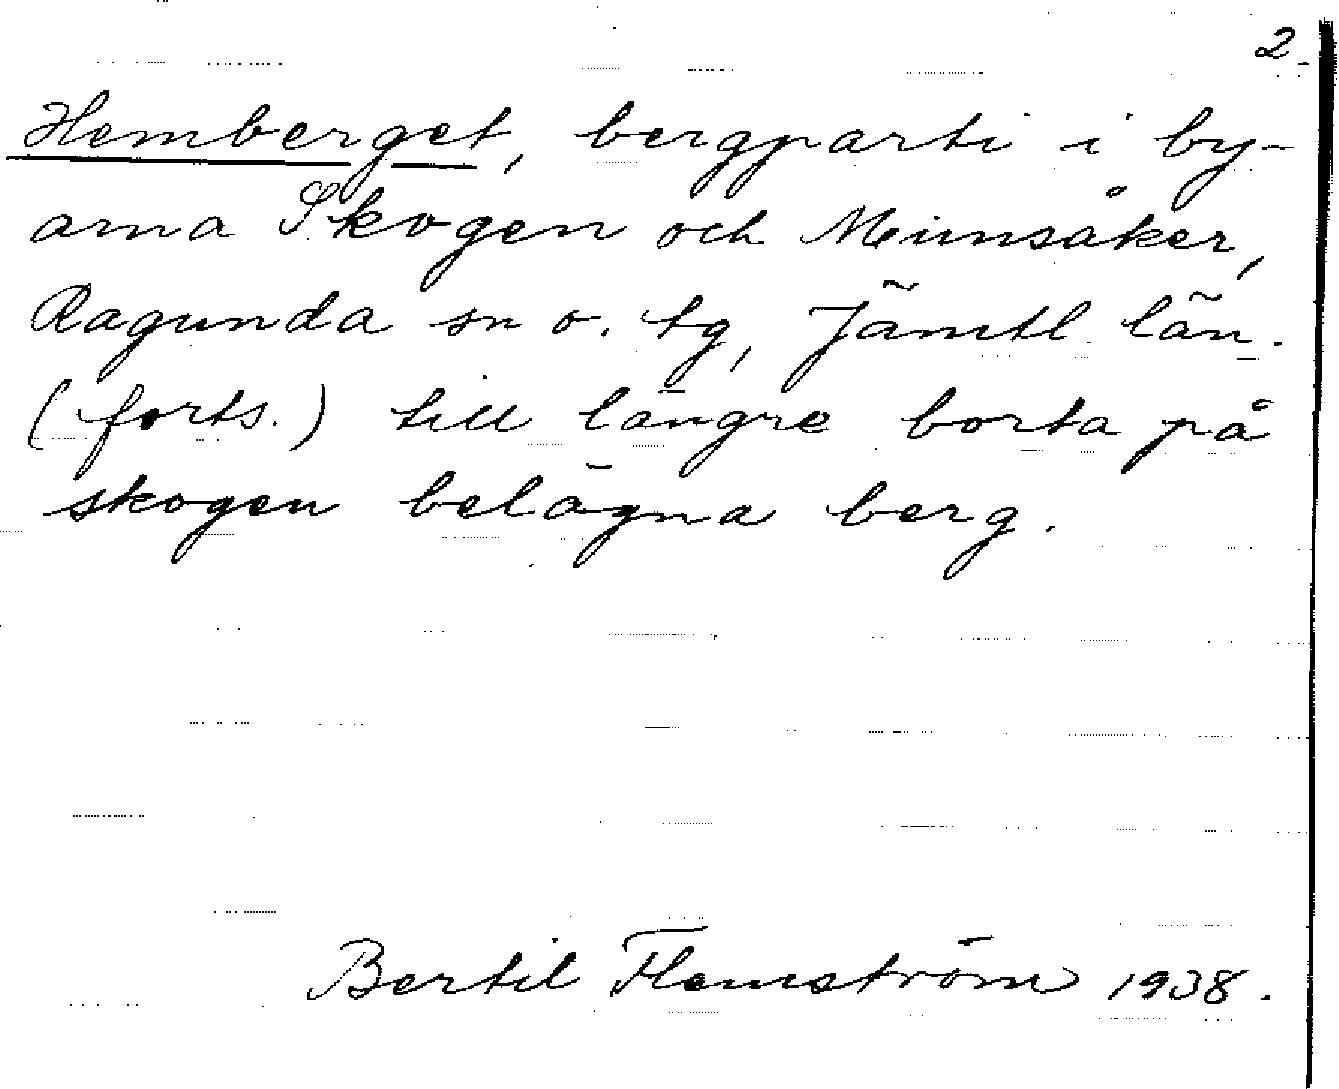 2.
Hemberget, bergparti i by-
arna Skogen och Munsåker,
Ragunda sn o. tg, Jämtl. län.
(forts.) till längre borta på
skogen belägna berg.
Bertil Flemström 1938.